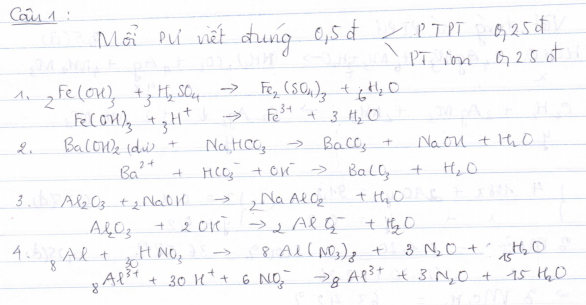 Câu 1:
Mỗi pứ viết đúng 0,5đ PTPT 0,25đ
PT ion 0,25đ
1. 2Fe(OH)3 + 3H2SO4 → Fe2(SO4)3 + 6H2O
Fe(OH)3 + 3H+ → Fe3+ + 3H2O
2. Ba(OH)2 (dư) + NaHCO3 → BaCO3 + NaOH + H2O
Ba2+ + HCO3- + OH- → BaCO3 + H2O
3. Al2O3 + 2NaOH → 2NaAlO2 + H2O
Al2O3 + 2OH- → 2AlO2- + H2O
4. 8Al + 30HNO3 → 8Al(NO3)3 + 3N2O + 15H2O
8Al3+ + 30H+ + 6NO3- → 8Al3+ + 3N2O + 15H2O